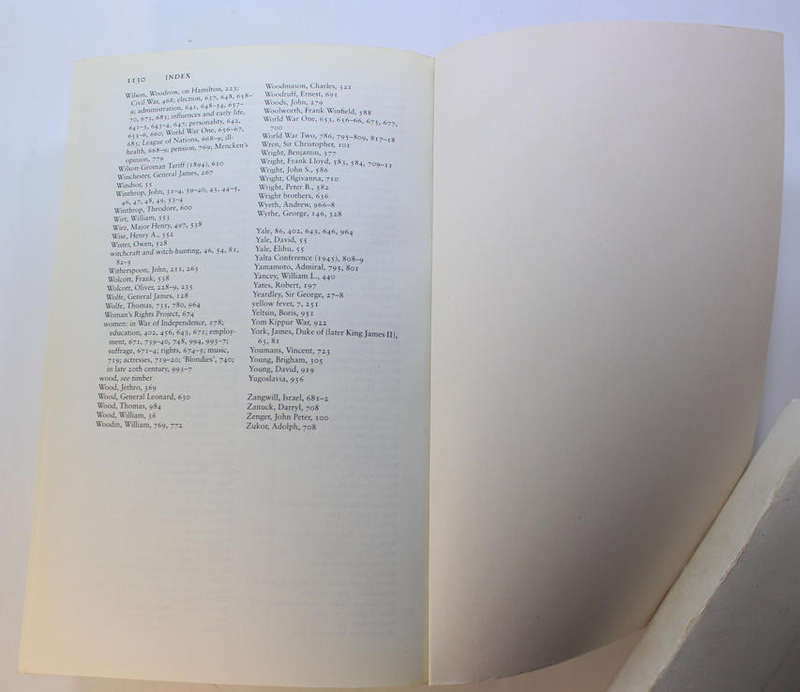 1130 INDEX
Wilson, Woodrow, on Hamilton, 223;
Civil War, 468; election, 637, 648, 658–
9; administration, 641, 648–54, 657–
70, 675, 683; influences and early life,
641–3, 643–4, 647; personality, 642,
653–6, 660; World War One, 656–67,
683; League of Nations, 668–9; ill-
health, 668–9; pension, 769; Mencken's
opinion, 779
Wilson-Groman Tariff (1894), 610
Winchester, General James, 267
Windsor, 55
Winthrop, John, 32–4, 39–40, 43, 44–5,
46, 47, 48, 49, 52–4
Winthrop, Theodore, 600
Wirt, William, 353
Wirz, Major Henry, 497, 538
Wise, Henry A., 352
Wister, Owen, 528
witchcraft and witch-hunting, 46, 54, 81,
82–5
Witherspoon, John, 211, 263
Wolcott, Frank, 558
Wolcott, Oliver, 228–9, 235
Wolfe, General James, 128
Wolfe, Thomas, 735, 780, 964
Woman's Rights Project, 674
women: in War of Independence, 178;
education, 402, 456, 643, 671; employ-
ment, 671, 739–40, 748, 994, 995–7;
suffrage, 671–4; rights, 674–5; music,
719; actresses, 719–20; 'Blondies', 740;
in late 20th century, 993–7
wood, see timber
Wood, Jethro, 369
Wood, General Leonard, 630
Wood, Thomas, 984
Wood, William, 36
Woodin, William, 769, 772
Woodmason, Charles, 322
Woodruff, Ernest, 691
Woods, John, 276
Woolworth, Frank Winfield, 588
World War One, 653, 656–66, 675, 677,
700
World War Two, 786, 795–809, 817–18
Wren, Sir Christopher, 101
Wright, Benjamin, 377
Wright, Frank Lloyd, 583, 584, 709–11
Wright, John S., 586
Wright, Olgivanna, 710
Wright, Peter B., 582
Wright brothers, 636
Wyeth, Andrew, 966–8
Wythe, George, 146, 328
Yale, 86, 402, 643, 646, 964
Yale, David, 55
Yale, Elihu, 55
Yalta Conference (1945), 808–9
Yamamoto, Admiral, 795, 801
Yancey, William L., 440
Yates, Robert, 197
Yeardley, Sir George, 27–8
yellow fever, 7, 251
Yeltsin, Boris, 951
Yom Kippur War, 922
York, James, Duke of (later King James II),
65, 81
Youmans, Vincent, 723
Young, Brigham, 305
Young, David, 919
Yugoslavia, 956
Zangwill, Israel, 681–2
Zanuck, Darryl, 708
Zenger, John Peter, 100
Zukor, Adolph, 708